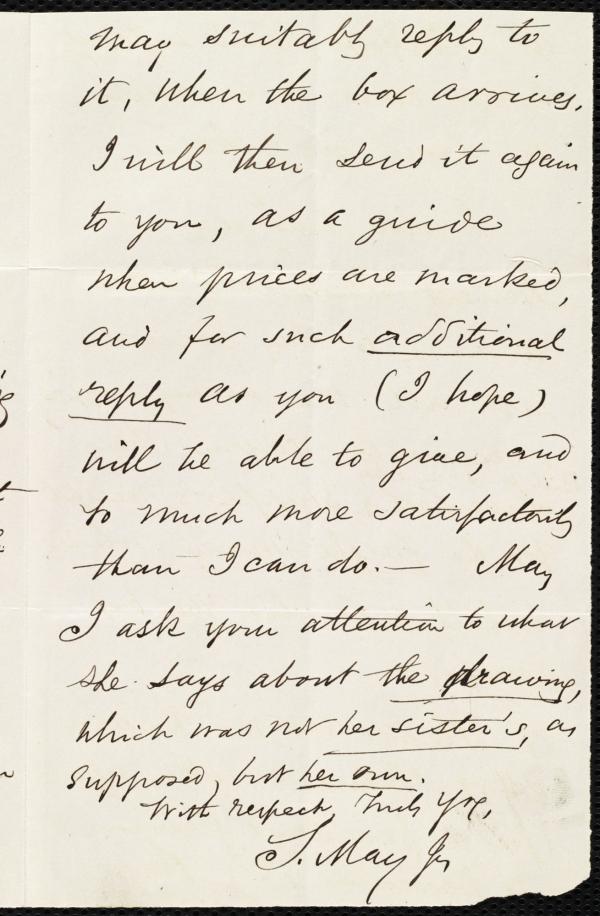 may suitably reply to
it, when the box arrives.
I will then send it again
to you, as a guide
when prices are marked,
and for such additional
reply as you (I hope)
will be able to give, and
so much more satisfactorily
than I can do.— May
I ask your attention to what
she says about the drawing,
which was not her sister's, as
supposed, but her own.
With respect, Truly Yrs,
S. May Jr